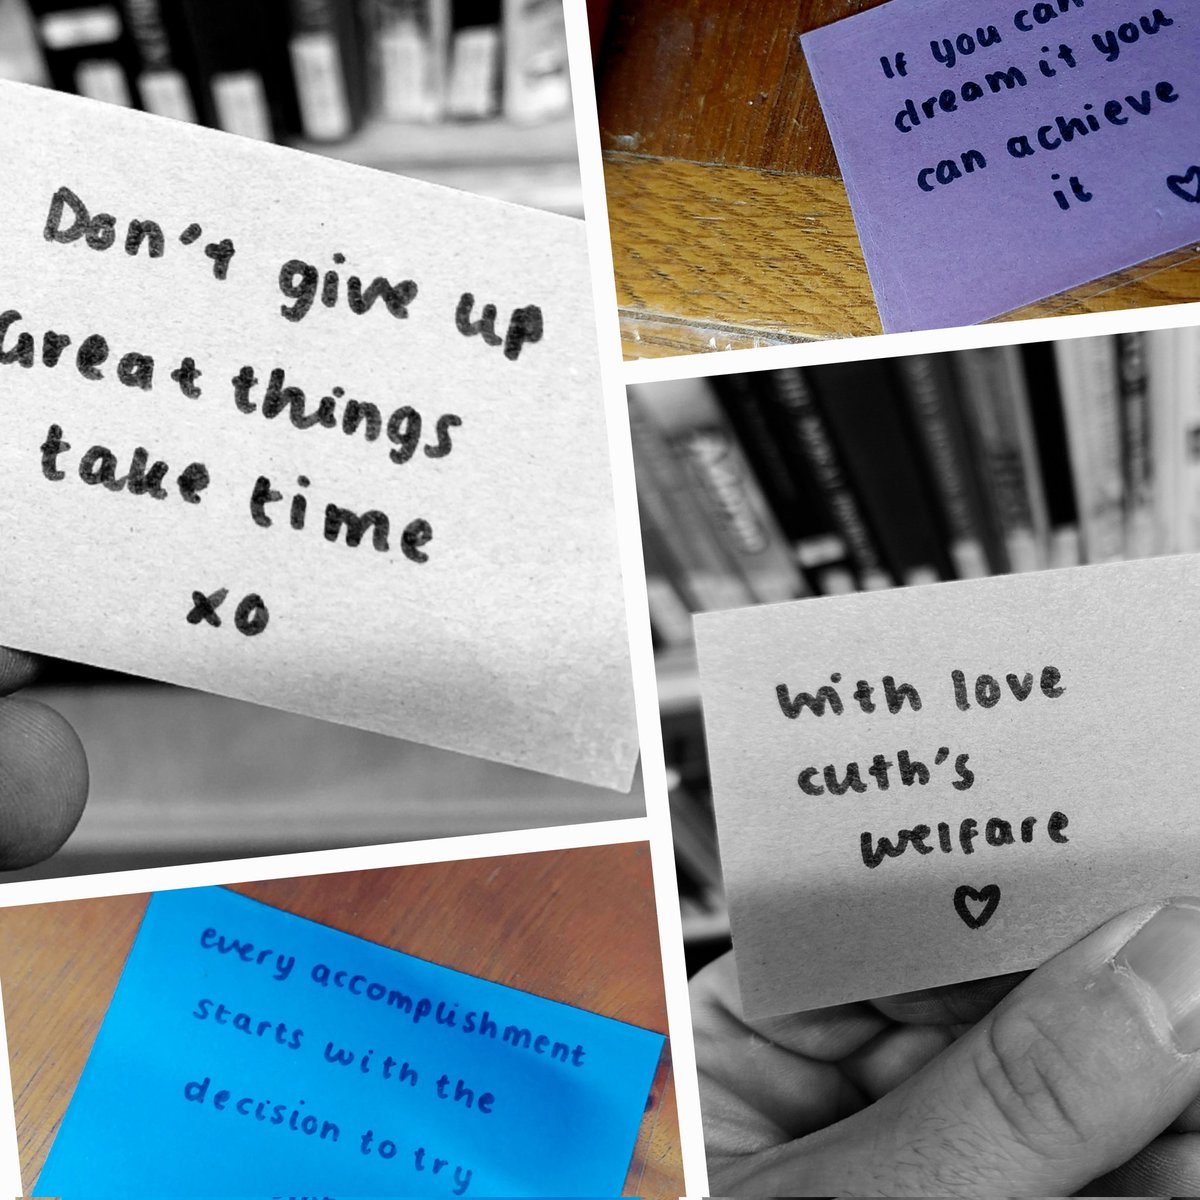 Don't give up
Great things
take time
xo
If you can
dream it you
can achieve
it ♡
with love
cuth's
welfare
♡
every accomplishment
starts with the
decision to try